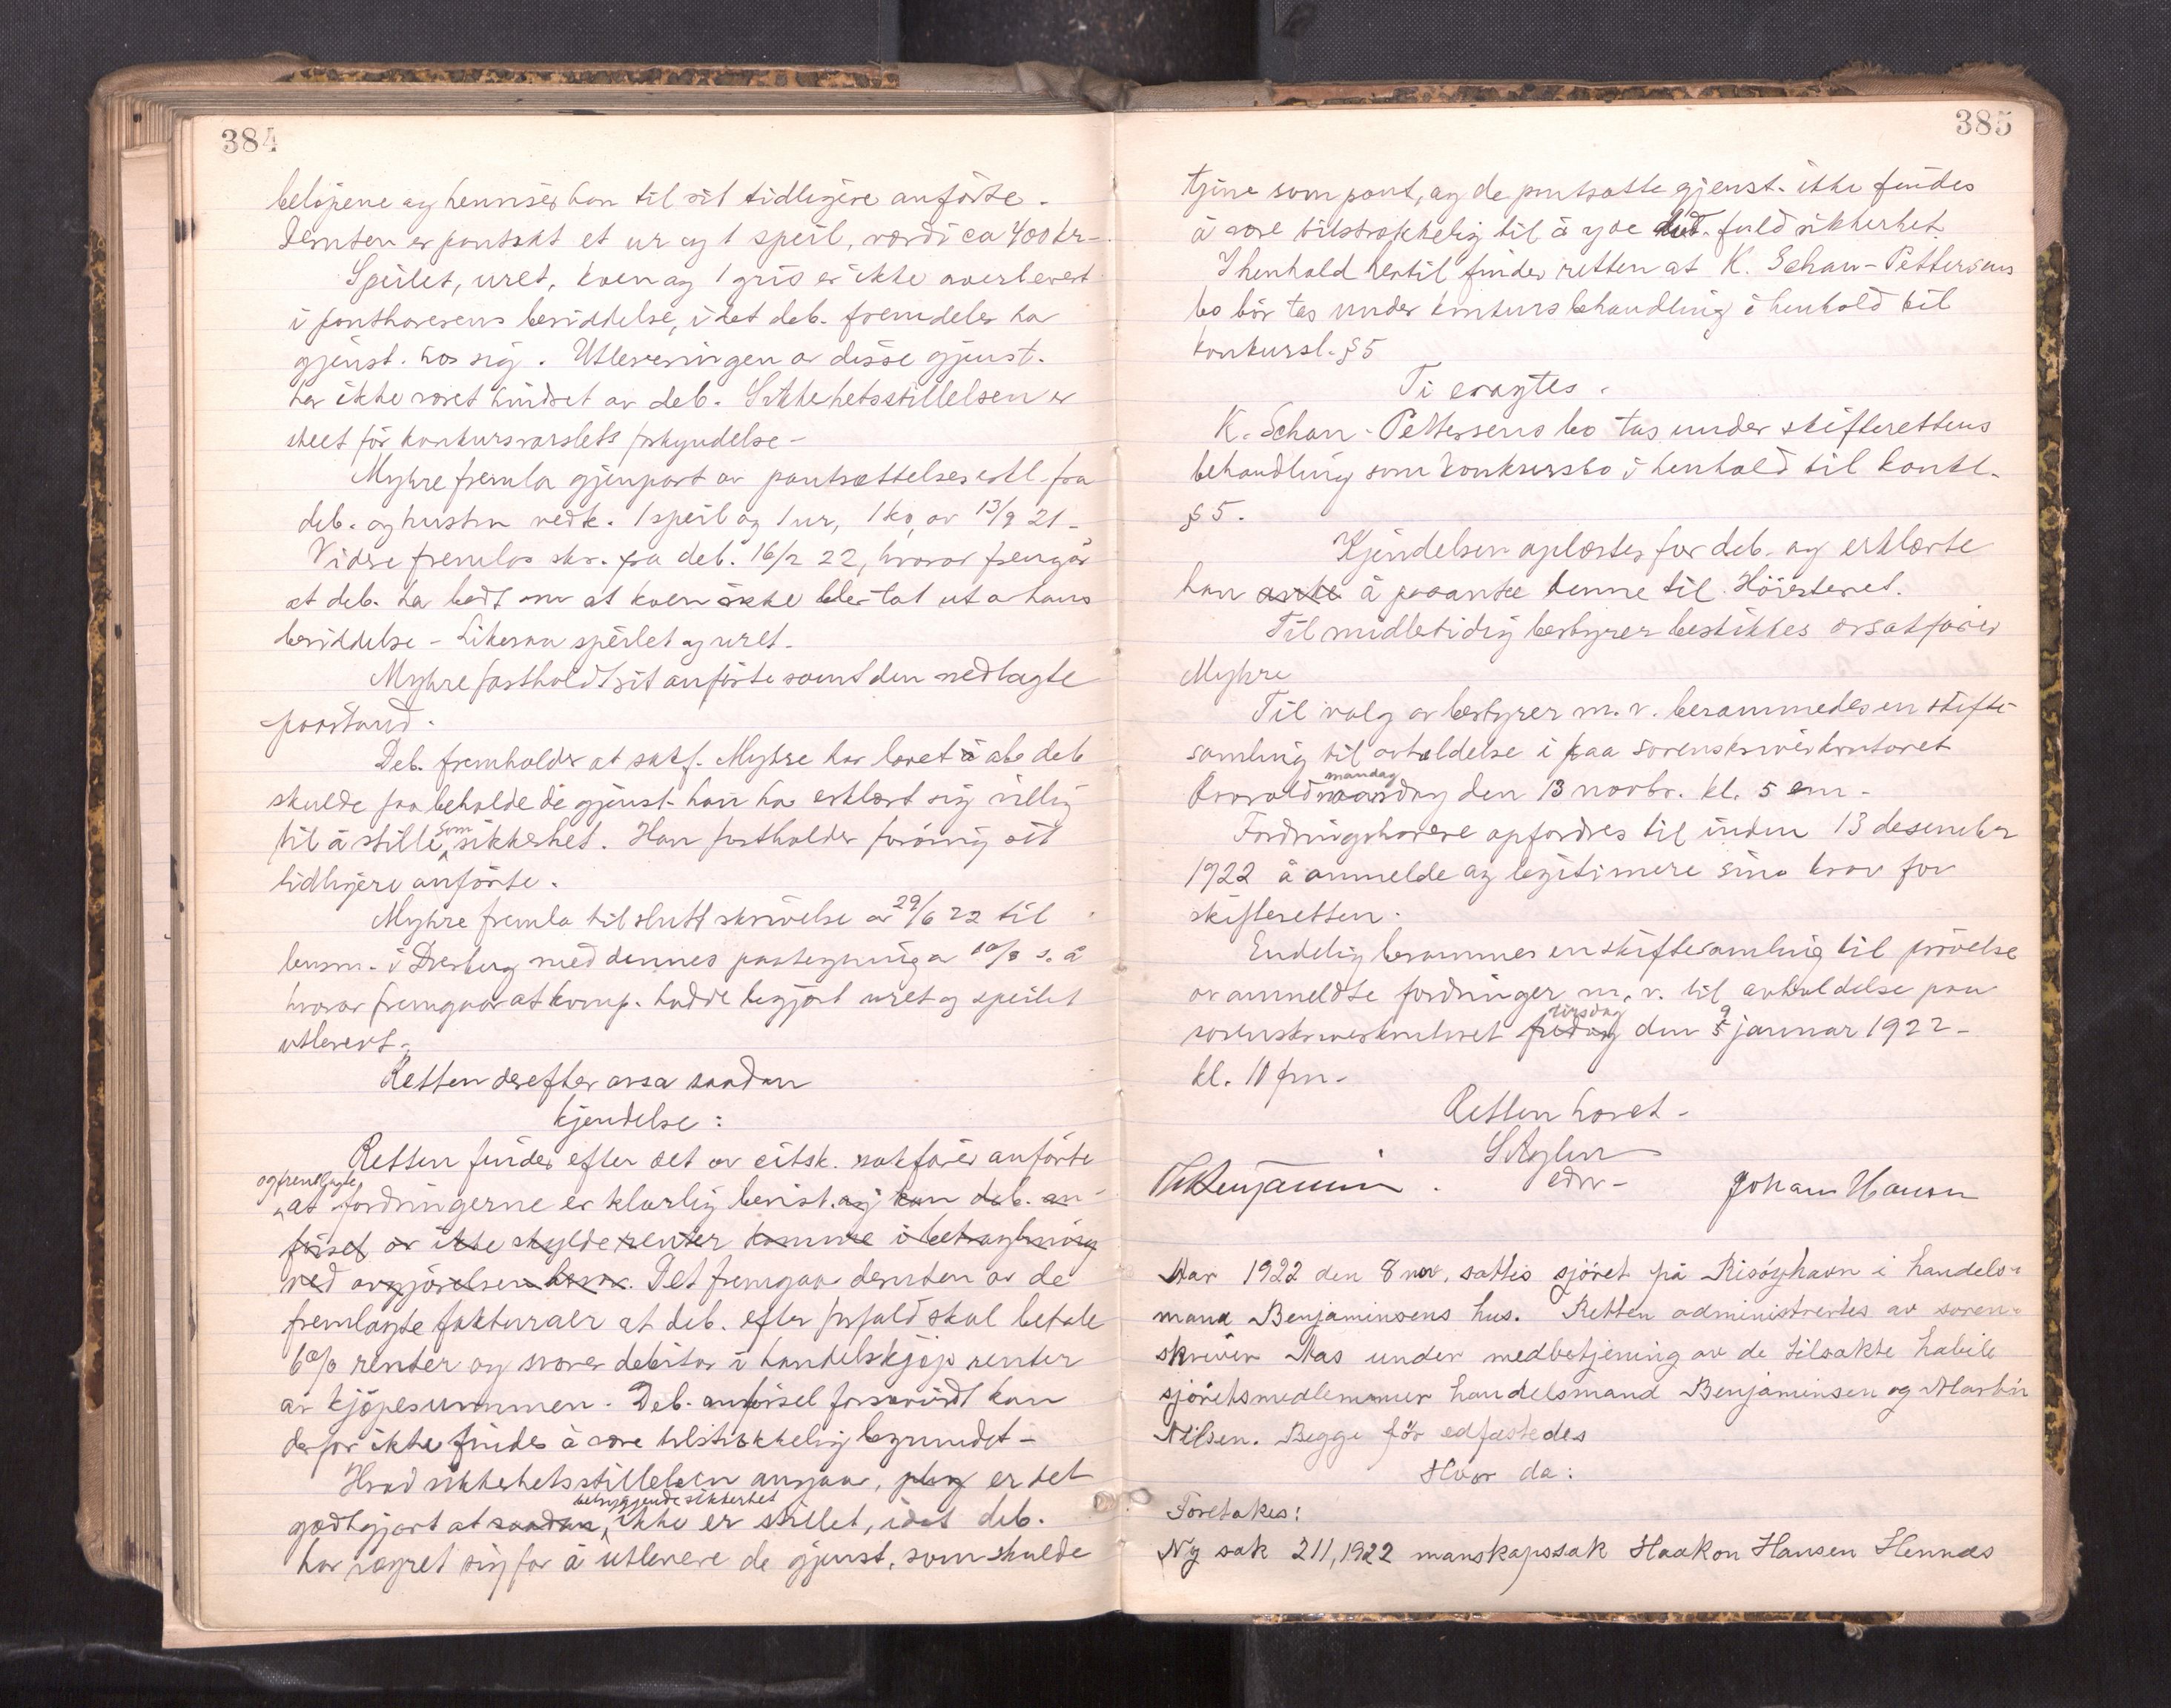 384
beløpene og henviser han til sit tidligere anførte.
Desuten er pantsat et ur og 1 speil, værdi ca 400 kr.
Speilet, uret, koen og 1 gris er ikke overlevert
i panthaverens besiddelse, idet deb. fremdeles har
gjenst. hos sig. Utleveringen av disse gjenst.
har ikke været hindret av deb. Sikkerhetsstillelsen er
skeet før konkursvarslets forkyndelse -
Myhre fremla gjenpart av pantsættelseserkl. fra
deb. og hustru vedk. 1 speil og 1 ur, 1 ko, av 13/9 21 -
Videre fremlas skr. fra deb. 16/2 22, hvorav fremgår
at deb. har bedt om at koen ikke blev tat ut av hans
besiddelse - Likesaa speilet og uret.
Myhre fastholdt sit anførte samt den nedlagte
paastand.
Deb. fremholder at sakf. Myhre har lovet å at deb
skulde faa beholde de gjenst. han har erklært sig villig
til å stille som sikkerhet. Han fastholder forøvrig sit
tidligere anførte.
Myhre fremla til slutt skrivelse av 29/6 22 til
lensm. i Dverberg med dennes paategning av 10/8 s. å
hvorav fremgaar at komp. hadde begjært uret og speilet
utlevert.
Retten derefter avsa saadan
kjendelse:
Retten finder efter det av citsk. sakfører anførte
og fremlagte
at fordringerne er klarlig bevist. og kan deb. an-
førsel av ikke skylde renter komme i betragtning
ved avgjørelsen herav. Det fremgaar desuten av de
fremlagte fakturaer at deb. efter forfald skal betale
6% renter og svarer debitor i handelskjøp renter
av kjøpesummen. Deb. anførsel forsaavidt kan
derfor ikke findes å være tilstrækkelig begrundet -
Hvad sikkerhetsstillelsen angaar, er det
betryggende sikkerhet
godtgjort at saadan, ikke er stillet, idet deb.
har vægret sig for å utlevere de gjenst. som skulde
385
tjene som pant, og de pantsatte gjenst. ikke findes
å være tilstrækkelig til å yde fuld sikkerhet.
I henhold hertil finder retten at K. Schau-Pettersens
bo bør tas under konkursbehandling i henhold til
konkursl. § 5
Ti eragtes.
K. Schau-Pettersens bo tas under skifterettens
behandling som konkursbo i henhold til konkl.
§ 5.
Kjendelsen oplæstes for deb. og erklærte
han anke å paaanke denne til Høiesteret.
Til midletidig bestyrer beskikkes orsakfører
Myhre
Til valg av bestyrer m. v. berammedes en skifte-
samling til avholdelse i paa sorenskriverkontoret
mandag
den 13 novbr. kl. 5 em.
Fordringshavere opfordres til inden 13 desember
1922 å anmelde og legitimere sine krav for
skifteretten.
Endelig berammes en skiftesamling til prøvelse
av anmeldte fordringer m. v. til avholdelse paa
tirsdag 9
sorenskriverkontoret fredag den 5 januar 1922 -
kl. 10 fm.
Retten hævet -
edsv -
Johan Hansen
Aar 1922 den 8 nov. sattes sjøret på Risøyhavn i handels-
mand Benjaminsens hus. Retten administrertes av soren-
skriver Aas under medbetjening av de tilsakte habile
sjøretsmedlemmer handelsmand Benjaminsen og Martin
Nilsen. Begge før edfæstedes
Hvor da:
Foretokes:
Ny sak 211, 1922 manskapssak Haakon Hansen Hennes